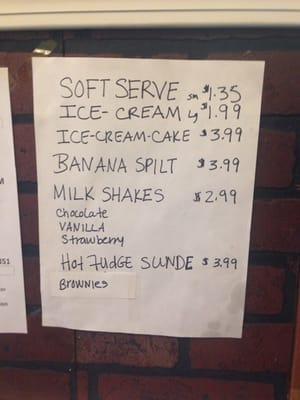 SOFT SERVE sm $1.35
ICE-CREAM Lg $1.99
ICE-CREAM-CAKE $3.99
BANANA SPILT $3.99
MILK SHAKES $2.99
Chocolate
VANILLA
Strawberry
Hot FUDGE SUNDE $3.99
Brownies